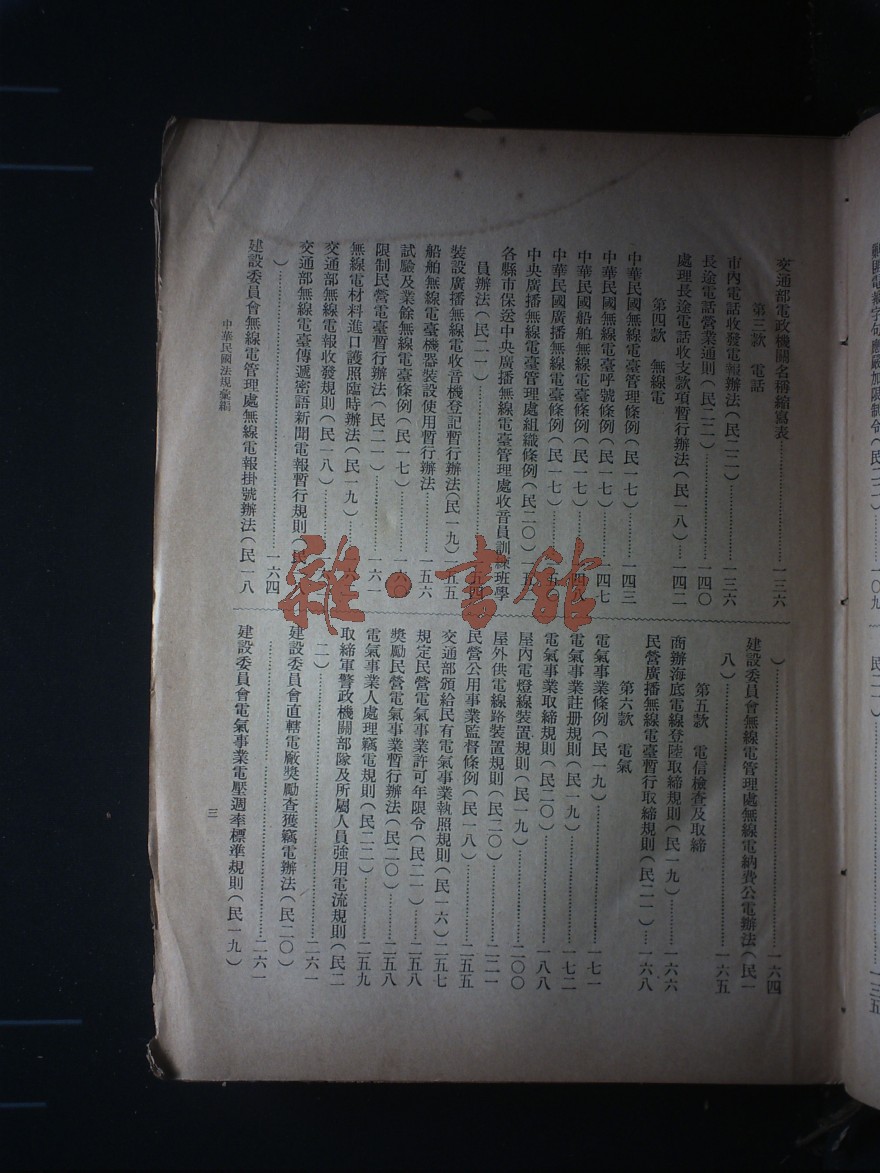 交通部電政機關名稱縮寫表……一三六
第三款　電話
市內電話收發電報辦法(民二二)……一三六
長途電話營業通則(民二二)……一四〇
處理長途電話收支款項暫行辦法(民一八)…一四二
第四款　無線電
中華民國無線電臺管理條例(民一七)……一四三
中華民國無線電臺呼號條例(民一七)……一四七
中華民國船舶無線電臺條例(民一七)……一四八
中華民國廣播無線電臺條例(民一七)……一五
中央廣播無線電臺管理處組織條例(民二〇)一五
各縣市保送中央廣播無線電臺管理處收音員訓練班學
員辦法(民二一)……一五四
裝設廣播無線電收音機登記暫行辦法(民一九)一五五
船舶無線電臺機器裝設使用暫行辦法……一五六
試驗及業餘無線電臺條例(民一七)……一六〇
限制民營電臺暫行辦法(民二一)……一六一
無線電材料進口護照臨時辦法(民一九)……一六
交通部無線電報收發規則(民一八)……一六
交通部無線電臺傳遞密語新聞電報暫行規則(民一八
)……一六四
建設委員會無線電管理處無線電報掛號辦法(民一八
)……一六四
建設委員會無線電管理處無線電納費公電辦法(民一
八)……一六五
第五款　電信檢查及取締
商辦海底電線登陸取締規則(民一九)……一六六
民營廣播無線電臺暫行取締規則(民二一)…一六八
第六款　電氣
電氣事業條例(民一九)……一七一
電氣事業註册規則(民一九)……一七二
電氣事業取締規則(民二〇)……一八八
屋內電燈線裝置規則(民一九)……二〇〇
屋外供電線路裝置規則(民二〇)……二二一
民營公用事業監督條例(民一八)……二五五
交通部頒給民有電氣事業執照規則(民一六)二五七
規定民營電氣事業許可年限令(民二一)……二五八
獎勵民營電氣事業暫行辦法(民二〇)……二五八
電氣事業人處理竊電規則(民二二)……二五九
取締軍警政機關部隊及所屬人員強用電流規則(民二
二)……二六一
建設委員會直轄電廠獎勵查獲竊電辦法(民二〇)
……二六一
建設委員會電氣事業電壓週率標準規則(民一九)
中華民國法規彙編
三
雜·書館